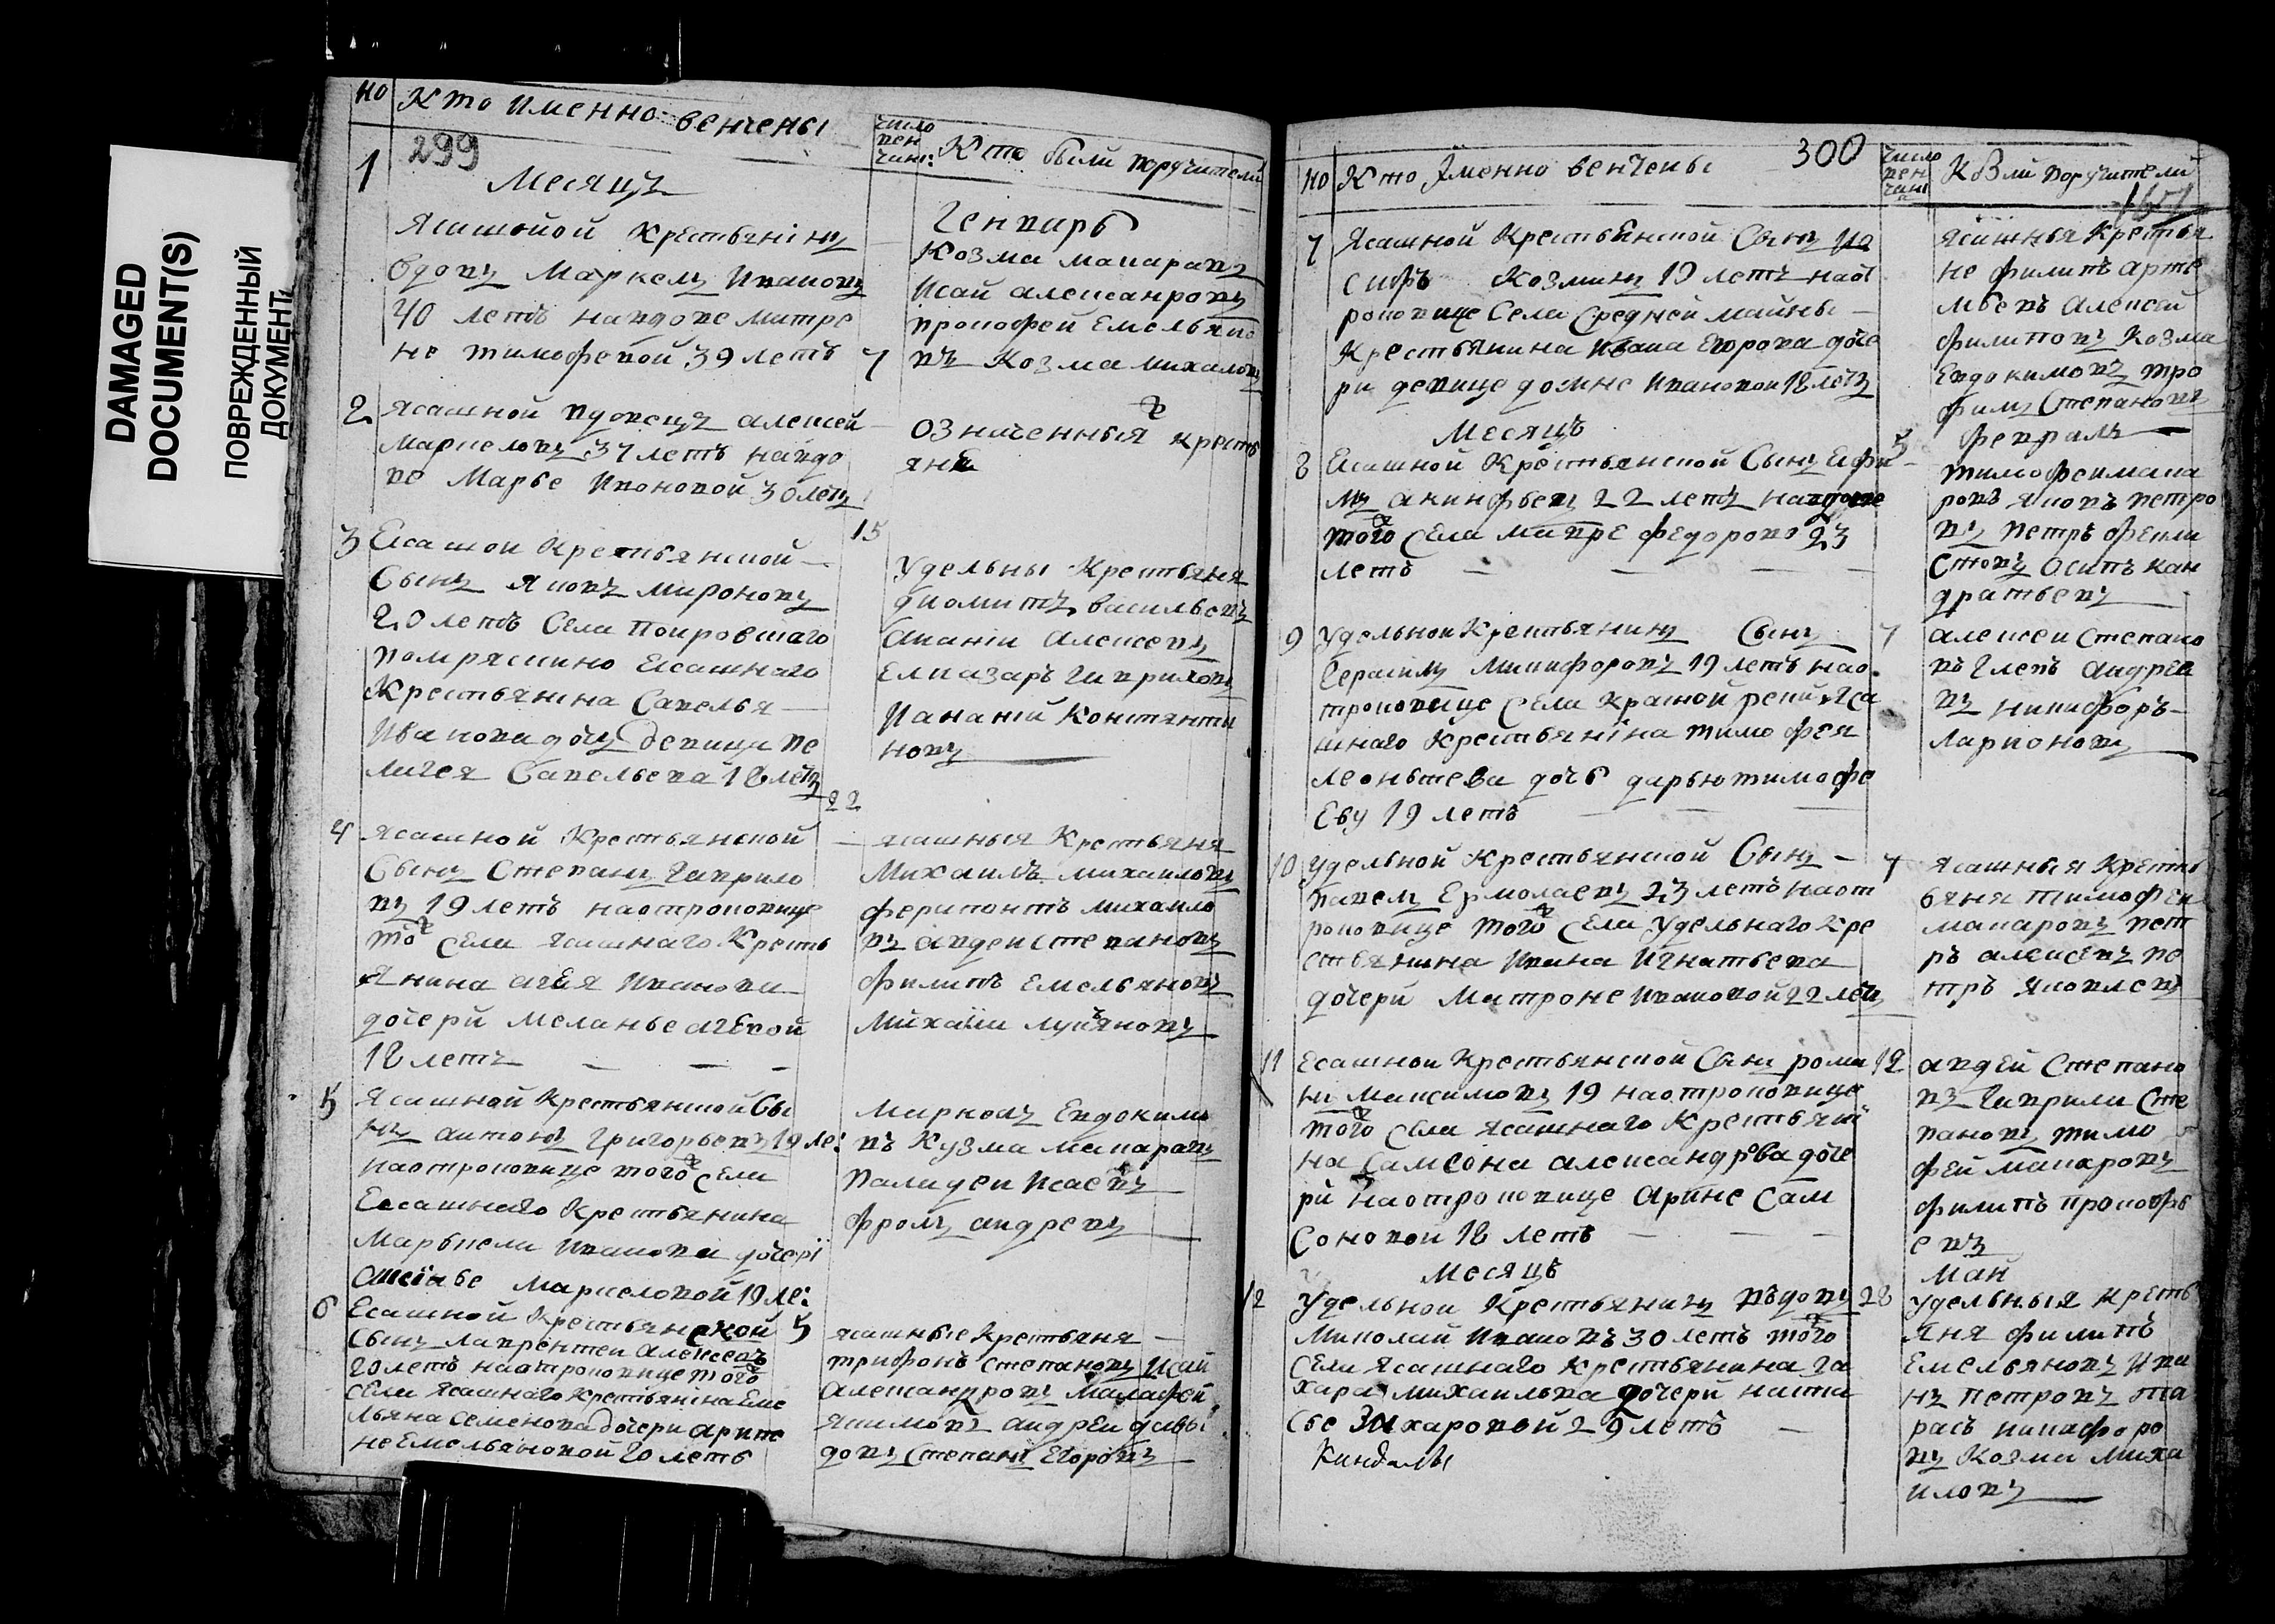 DAMAGED
DOCUMENT(S)
ПОВРЕЖДЕННЫЙ
ДОКУМЕНТ
но Кто именно венчены
число вен чани: Кто были поручители
299
1 Месяцъ
Генварь
Ясашнойой крестьянінъ
вдовъ Маркелъ Ивановъ
40 летъ навдове Матре
не тимофевой 39 летъ
7
Козма макаравъ
Исай алексанровъ
прокофей Емельяно
въ Козма михаловъ
2 Ясашной вдовецъ алексей
маркеловъ 37 летъ навдо
ве Марье Ивоновой 30 летъ
означенныя кресть
яне
15
3 Есашои крестьянской
Сынъ Яковъ мироновъ
20 летъ Села Покровшаго
Есашнаго
Крестьянина Савелья
Иванова дочъ девица пе
лагея Савельева 18 летъ
Удельны Крестьяня
диомитъ васильевъ
Ананіи Алексевъ
Елиазаръ Гавриловъ
Иананій Константи
новъ
22
4 ясашной Крестьянской
Сынъ Степанъ Гаврило
въ 19 летъ наотроковице
того Села ясашнаго Кресть
янина агея Иванова
дочери меланье агевой
18 летъ
ясашныя Крестьяня
Михаилъ михаиловъ
ферапонтъ михаило
въ авдеи степановъ
филипъ емельяновъ
Михаіла лукъяновъ
5 Ясашной Крестьянской Сы
нъ антонъ григорьевъ 19 ле:
наотроковице того Села
Есашнаго Крестьянина
Марькела Иванова дочері
маркеловой 19 ле:
маркелъ Евдокимо
въ Кузма макаравъ
Паладеи Исаевъ
фролъ андревъ
6 Есашной Крестьянской
Сынъ лаврентеи алексевъ
20 летъ наотроковице того
Села ясашнаго Крестьяніна Еме
льяна семенова дочери арине
не Емельяновой 20 летъ
5
ясашные Крестьяня
трифонъ степановъ Исай
алексанровъ малафей
якимовъ андреи давы
довъ Степанъ Егоровъ
но Кто Именно венчены 300
число вен чани
К бли поручители
7 Ясашной Крестьянской Сынъ Ио
сифъ Козминъ 19 летъ наот
роковице Села Средней майны
крестьянина Ивана Егорова доче
ри девице домне Ивановой 18 летъ
ясашныя Крестья
не филипъ арте
мьевъ алексей
филиповъ Козма
Евдокимовъ тро
фимъ Степановъ
Месяцъ
февраль
8 Есашной Крестьянской Сынъ Ефи
мъ акинфьевъ 22 летъ навдове
того Села мавре федорово 23
летъ
5
тимофеимака
ровъ Яковъ петро
въ петръ феили
стовъ Осипъ кан
дратьевъ
9 Удельнои Крестьянинъ Сынъ
Герасимъ Никифоровъ 19 летъ нао
троковице Села Красной реки Яса
шнаго Крестьяніна тимофея
леоньтева дочь дарью тимофе
Еву 19 летъ
7
алексеи степано
въ Глебъ андрее
въ никифоръ
Ларионовъ
10 удельной Крестьянской Сынъ
Павелъ Ермолаевъ 23 летъ наот
роковице того Села Удельнаго кре
стьянина Ивана Игнатьева
дочери Матроне Ивановой 22 летъ
7
Ясашныя Кресть
бяня тимофеи
макаровъ пет
ръ алексевъ пе
тръ яковлевъ
11 Есашнои Крестьянской Сынъ рома
нъ Максимовъ 19 наотроковице
того Села ясашнаго Крестьяні
на Самсона александрева доче
ри наотроковице арине Сам
соновой 18 летъ
12
авдей Степано
въ Гаврила Сте
пановъ тимо
фей макаровъ
филипъ прокофь
евъ
Месяцъ
май
12 Удельнои Крестьянинъ въдовъ
Миколай Ивановъ 30 летъ того
Села ясашнаго крестьянина за
хара михаилова дочери наста
сье Захаровой 29 летъ
28
удельныя кресть
яня филипъ
Емельяновъ Ива
нъ петровъ та
расъ никифоро
въ Козма Миха
иловъ